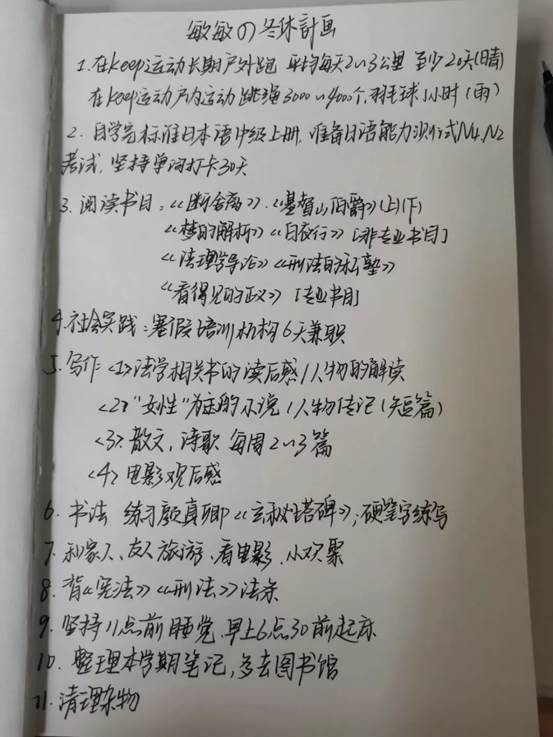 敏敏の冬休計画
1. 在Keep运动长期户外跑 平均每天2~3公里 至少20天(晴)
在Keep运动户内运动 跳绳3000~4000个, 羽毛球1小时(雨)
2. 自学完标准日本语中级上册, 准备日语能力测试N4、N2
考试, 坚持单词打卡30天
3. 阅读书目: 《断舍离》、《基督山伯爵》(上)(下)
《梦的解析》《白夜行》[非专业书目]
《法理学导论》《刑法的私塾》
《看得见的正义》[专业书目]
4. 社会实践: 寒假培训机构6天兼职
5. 写作 <1>法学相关书的读后感/人物的解读
<2>"女性"为主的小说/人物传记(短篇)
<3>散文, 诗歌 每周2~3篇
<4>电影观后感
6. 书法 练习颜真卿《玄秘塔碑》; 硬笔字练写
7. 和家人、友人旅游、看电影、小欢聚
8. 背《宪法》《刑法》法条
9. 坚持11点前睡觉, 早上6点30前起床
10. 整理本学期笔记, 多去图书馆
11. 清理杂物